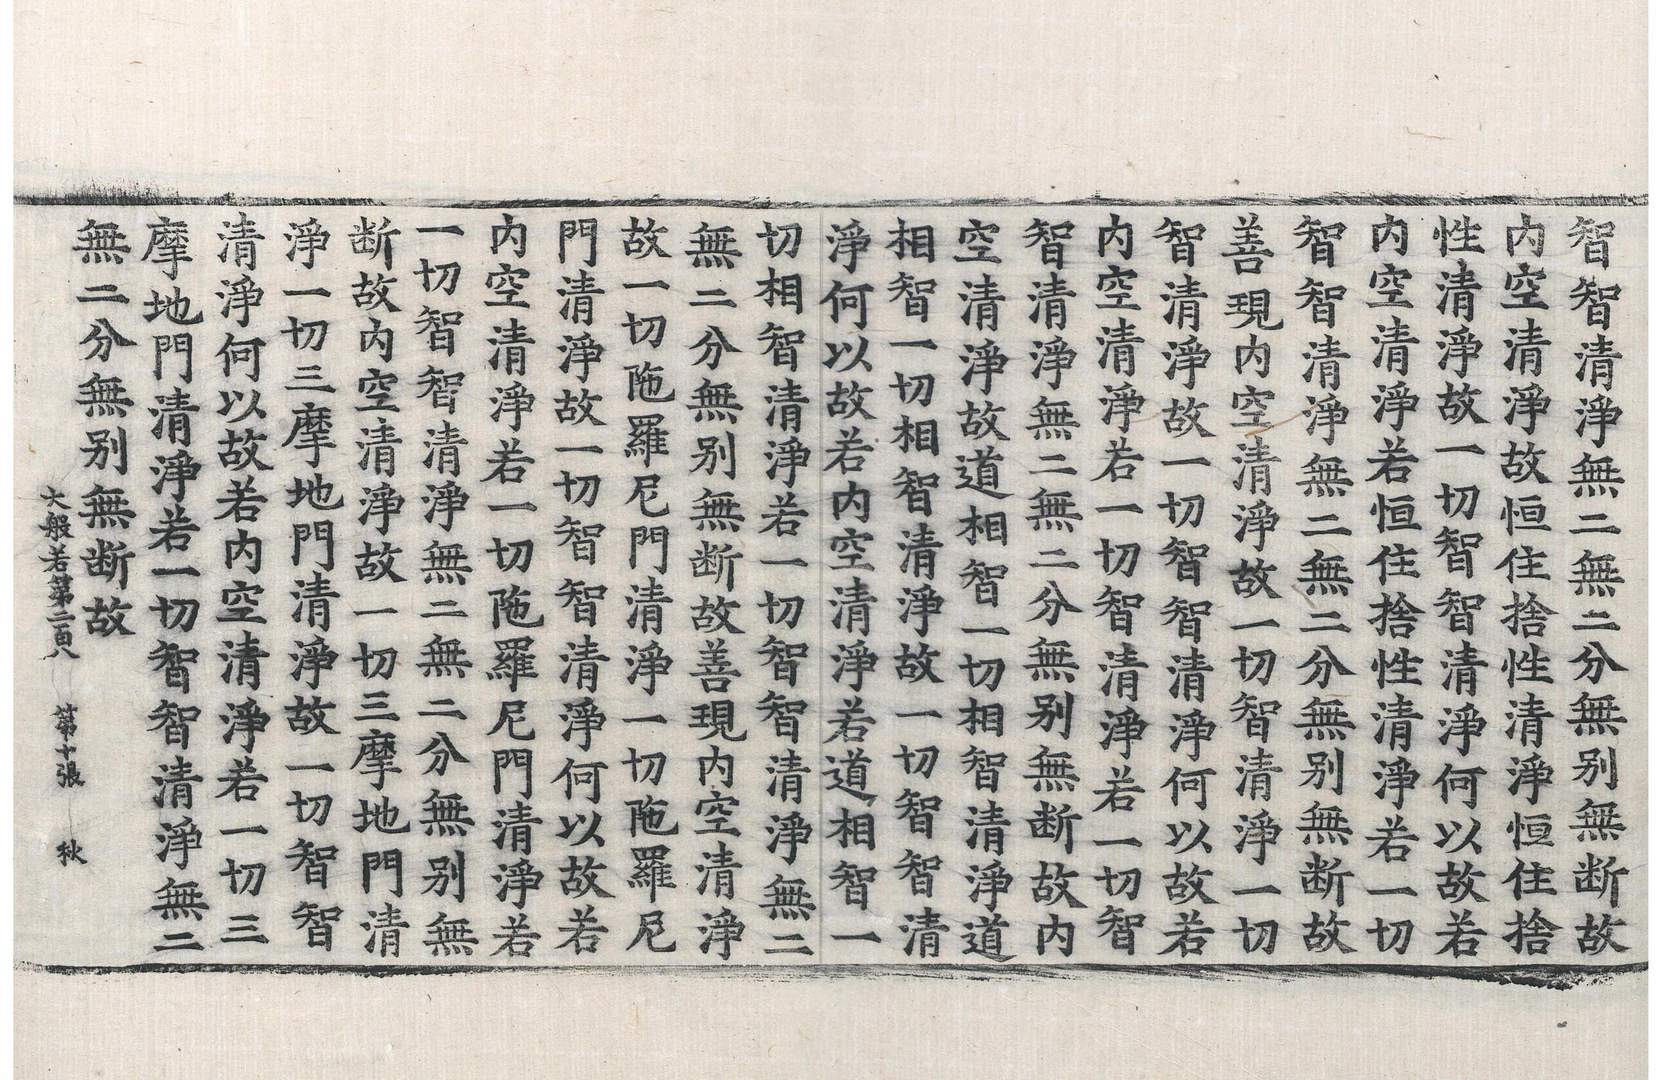 智智清淨無二無二分無別無断故
內空清淨故恒住捨性清淨恒住捨
性清淨故一切智智清淨何以故若
內空清淨若恒住捨性清淨若一切
智智清淨無二無二分無別無断故
善現內空清淨故一切智清淨一切
智清淨故一切智智清淨何以故若
內空清淨若一切智清淨若一切智
智清淨無二無二分無別無断故內
空清淨故道相智一切相智清淨道
相智一切相智清淨故一切智智清
淨何以故若內空清淨若道相智一
切相智清淨若一切智智清淨無二
無二分無別無断故善現內空清淨
故一切陁羅尼門清淨一切陁羅尼
門清淨故一切智智清淨何以故若
內空清淨若一切陁羅尼門清淨若
一切智智清淨無二無二分無別無
断故內空清淨故一切三摩地門清
淨一切三摩地門清淨故一切智智
清淨何以故若內空清淨若一切三
摩地門清淨若一切智智清淨無二
無二分無別無断故
大般若第二百八 第十張 秋